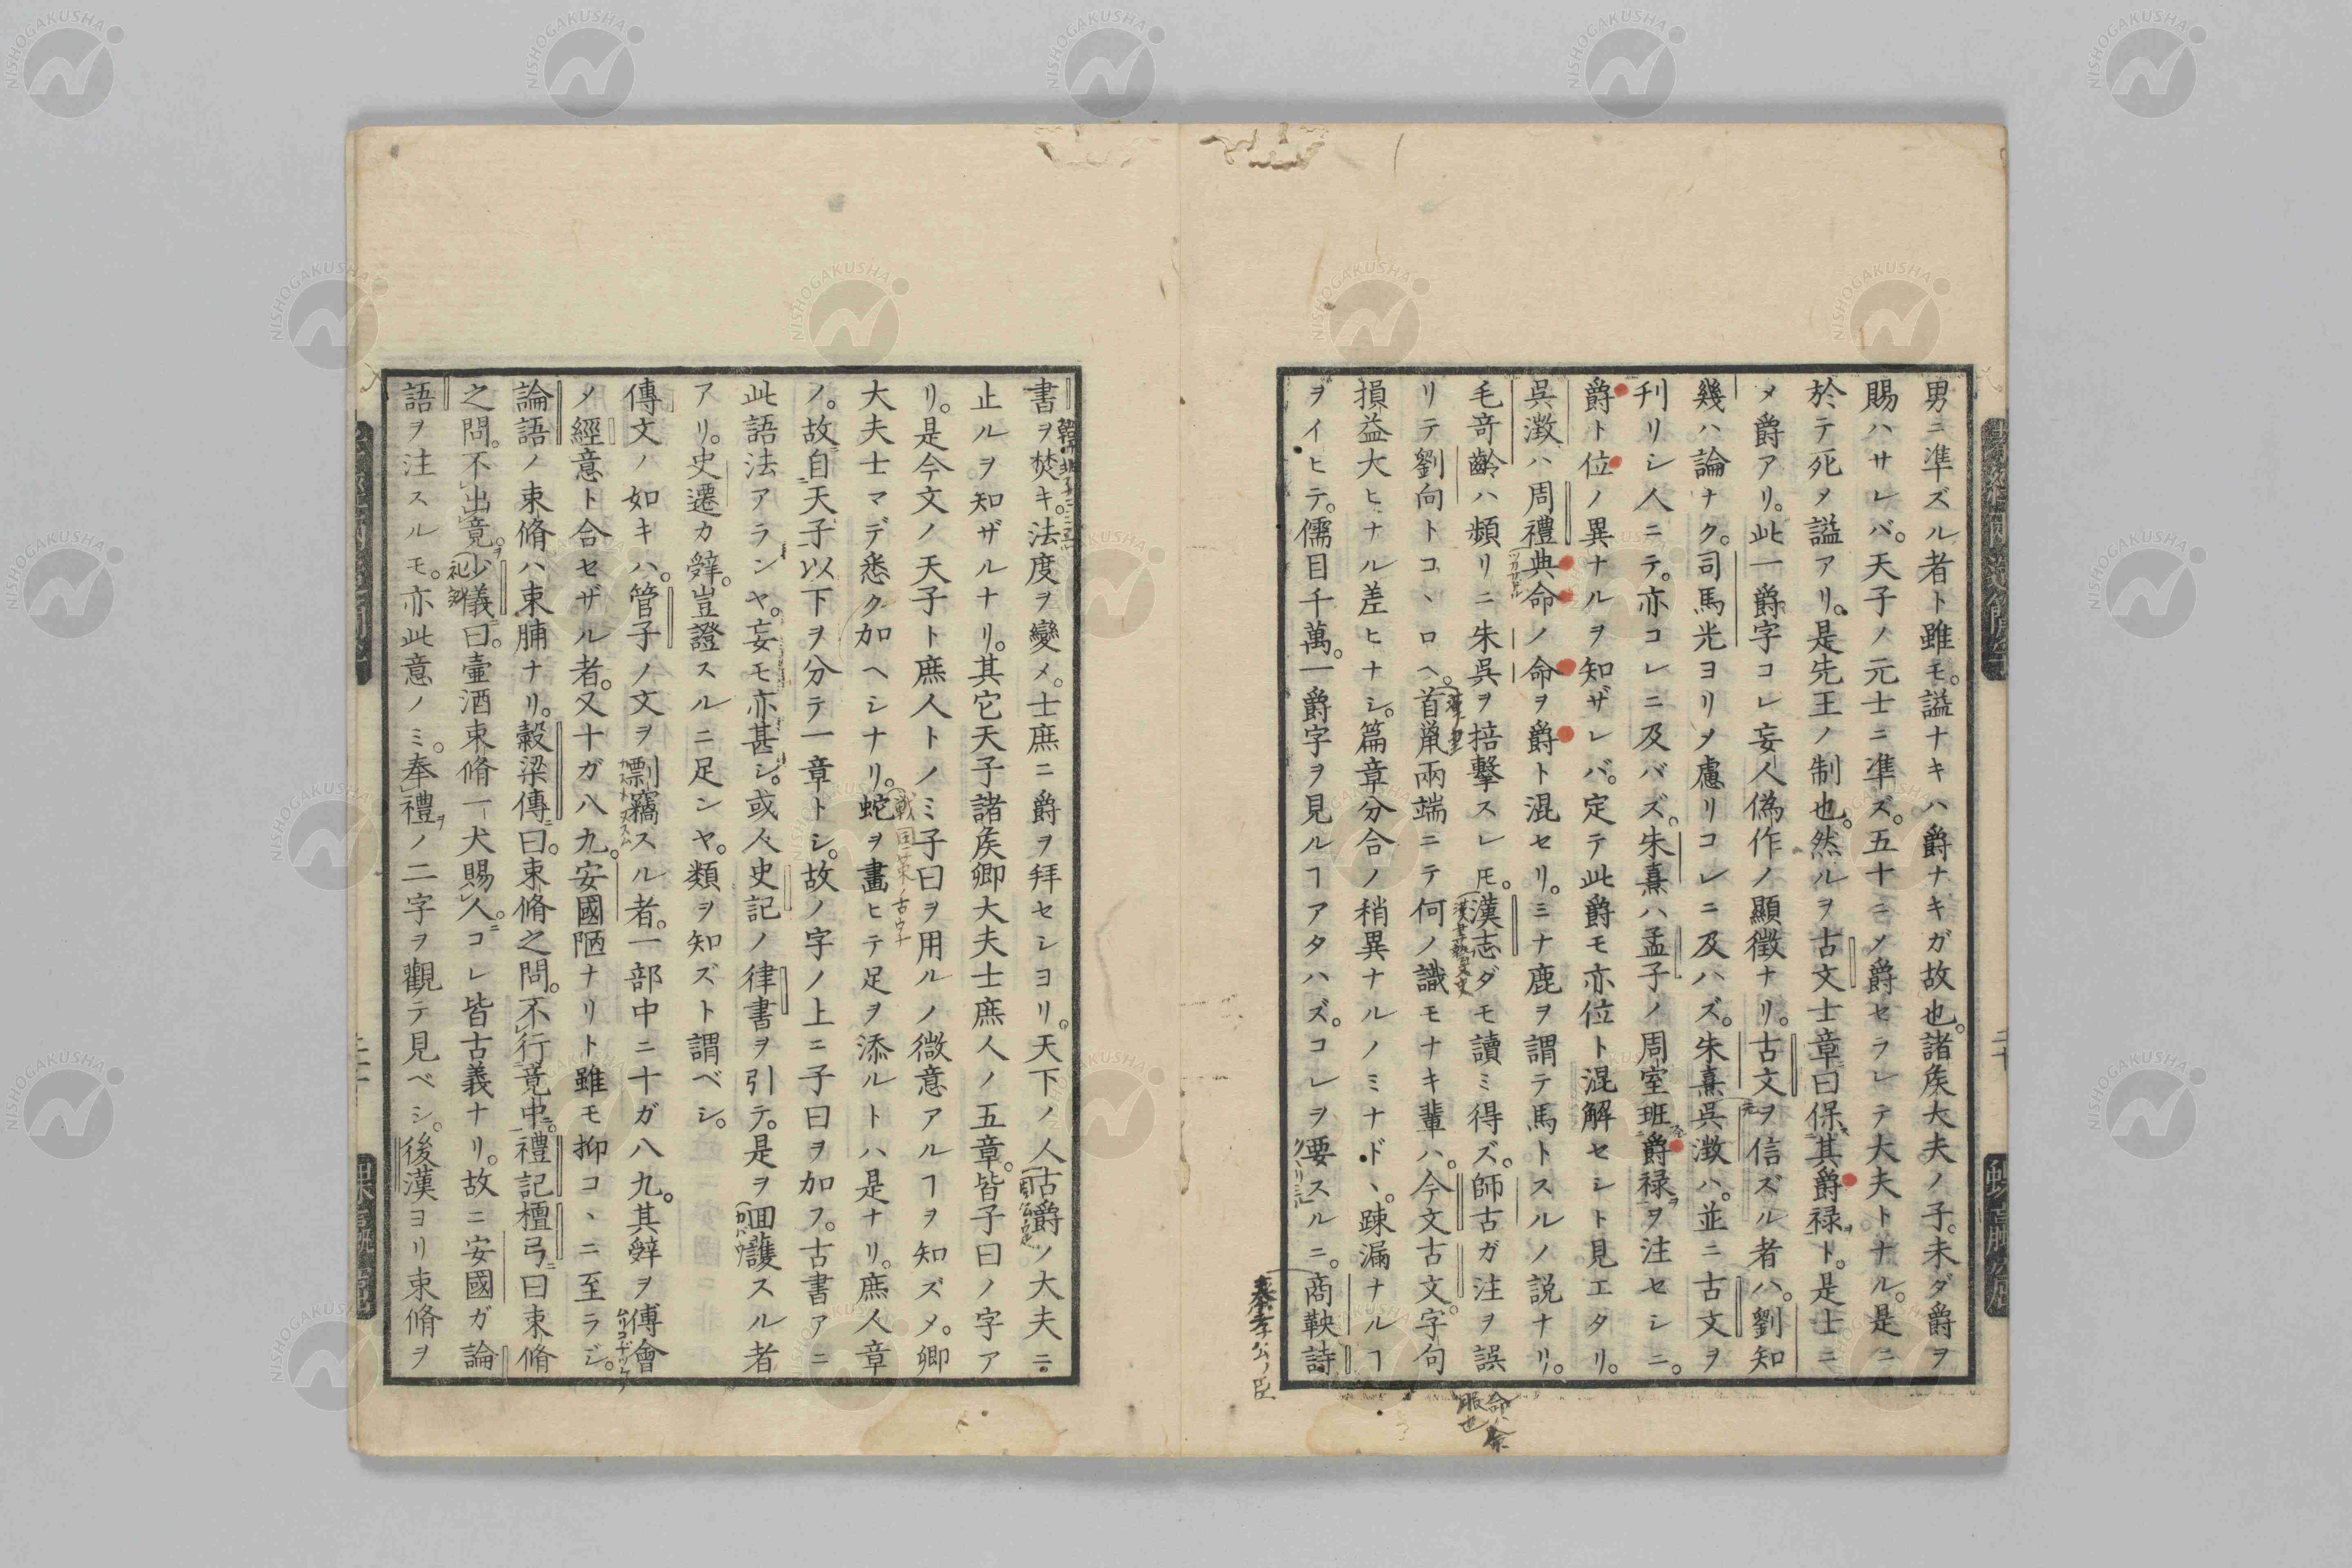 男ニ準ズル者ト雖モ。謚ナキハ爵ナキガ故也。諸矦大夫ノ子。未ダ爵ヲ
賜ハサレバ。天子ノ元士ニ準ズ。五十ニノ爵セラレテ大夫トナル。是ニ
於テ死メ謚アリ。是先王ノ制也。然ルヲ古文士章ニ曰保其爵禄ヲト。是士ニ
メ爵アリ。此一爵字コレ妄人偽作ノ顯徴ナリ。古文ヲ信ズル者ハ。劉知
幾ハ論ナク。司馬光ヨリメ慮リコレニ及ハズ。朱熹呉澂ハ。並ニ古文ヲ
刊リシ人ニテ。亦コレニ及バズ。朱熹ハ孟子ノ周室班爵禄ヲ注セシニ。
爵ト位ノ異ナルヲ知ザレバ。定テ此爵モ亦位ト混解セシト見エタリ。
呉澂ハ周禮典命ノ命ヲ爵ト混セリ。ミナ鹿ヲ謂テ馬トスルノ説ナリ。
毛奇齡ハ頻リニ朱呉ヲ掊擊スレ𪜈。漢志ダモ讀ミ得ズ。師古ガ注ヲ誤
リテ劉向トコヽロヘ。首鼠兩端ニテ何ノ識モナキ輩ハ。今文古文。字句
損益大ヒナル差ヒナシ。篇章分合ノ稍異ナルノミナドヽ。踈漏ナルヿ
ヲイヒテ。儒目千萬。一爵字ヲ見ルヿアタハズ。コレヲ要スルニ。商鞅詩
秦孝公ノ臣
書ヲ焚キ。法度ヲ變メ。士庶ニ爵ヲ拜セシヨリ。天下ノ人古爵ノ大夫ニ
止ルヲ知ザルナリ。其它天子諸矦卿大夫士庶人ノ五章。皆子曰ノ字ア
リ。是今文ノ天子ト庶人トノミ子曰ヲ用ルノ微意アルヿヲ知ズメ。卿
大夫士マデ悉ク加ヘシナリ。蛇ヲ畫ヒテ足ヲ添ルトハ是ナリ。庶人章
ノ。故自天子以下ヲ分テ一章トシ。故ノ字ノ上ニ子曰ヲ加フ。古書アニ
此語法アランヤ。妄モ亦甚シ。或人史記ノ律書ヲ引テ。是ヲ回護スル者
アリ。史遷カ辤。豈證スルニ足ンヤ。類ヲ知ズト謂ベシ。
傳文ノ如キハ。管子ノ文ヲ剽竊スル者。一部中ニ十ガ八九。其辤ヲ傅會
ノ經意ト合セザル者。又十ガ八九。安國陋ナリト雖モ抑コヽニ至ラジ。
論語ノ束脩ハ束脯ナリ。穀梁傳ニ曰。束脩之問。不行竟中。禮記檀弓ニ曰束脩
之問。不出竟。少儀ニ曰。壷酒束脩一犬賜人。コレ皆古義ナリ。故ニ安國ガ論
語ヲ注スルモ。亦此意ノミ。奉禮ノ二字ヲ觀テ見ベシ。後漢ヨリ束脩ヲ